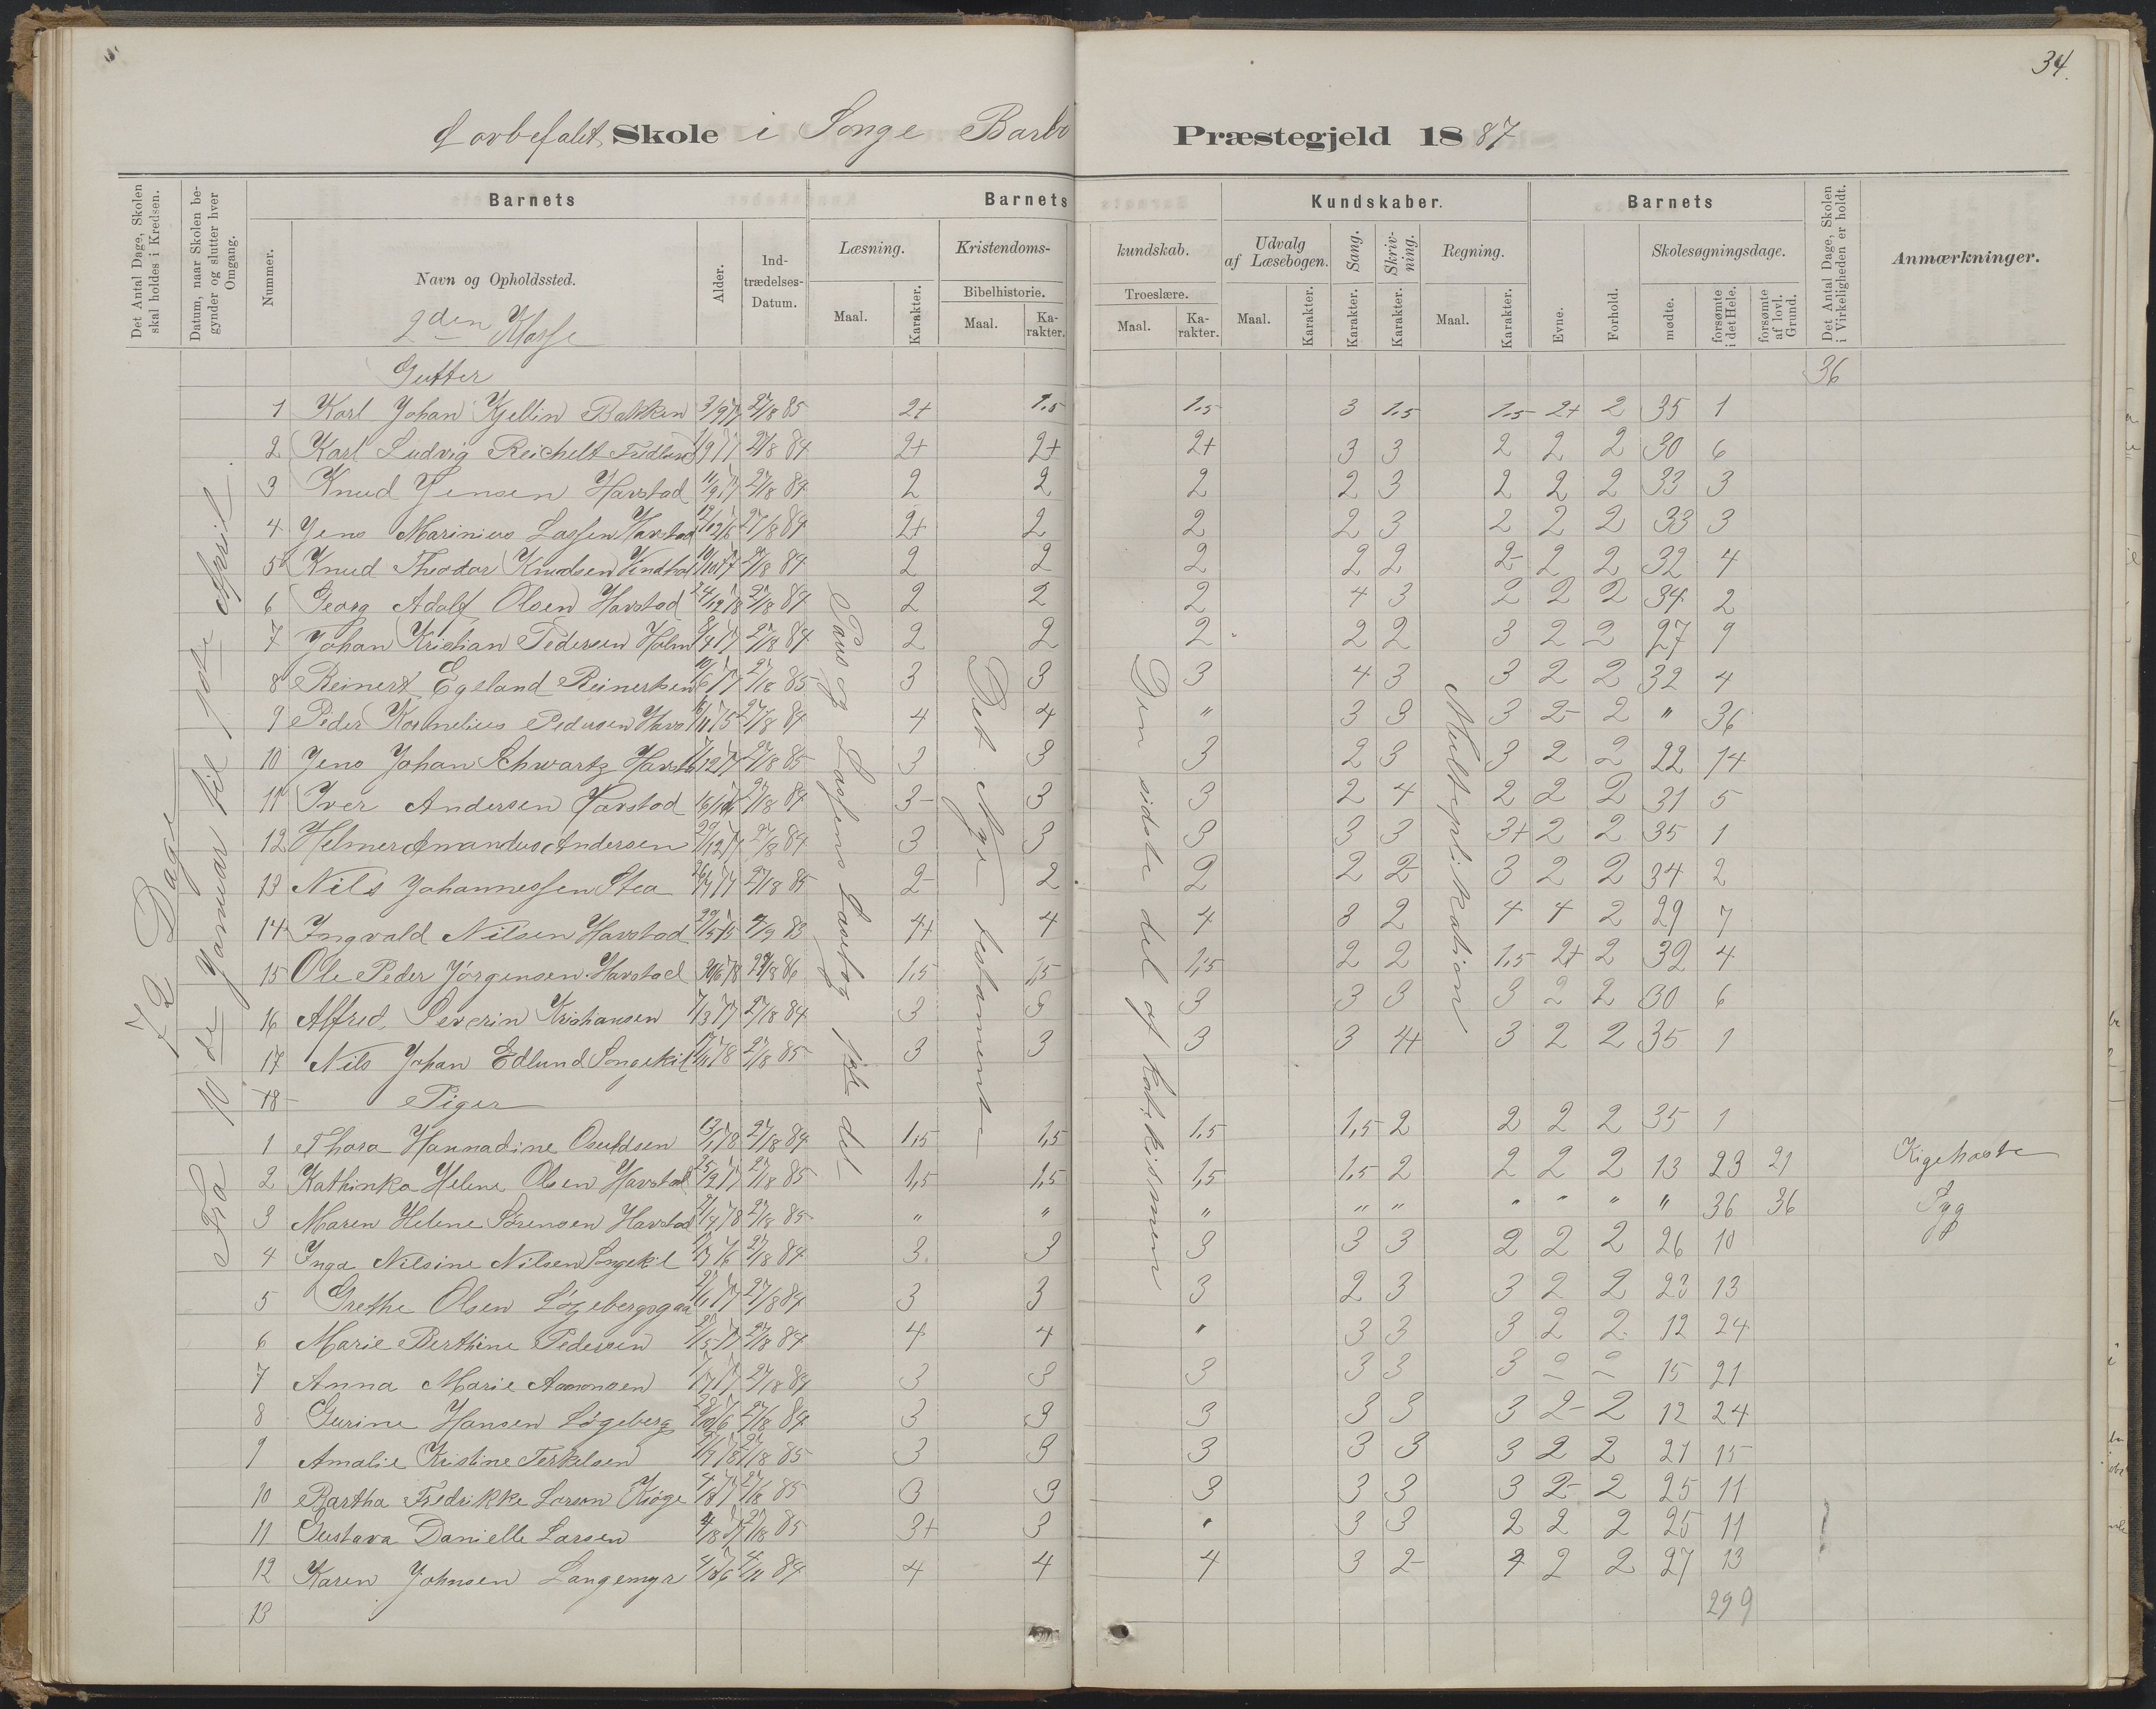 34.
Skole i Songe Barbo Præstegjeld 1887
Det Antal Dage, Skolen skal holdes i Kredsen.
Datum, naar Skolen begynder og slutter hver Omgang.
Nummer.
Barnets
Navn og Opholdssted.
Alder.
Indtrædelses-Datum.
Barnets Kundskaber.
Læsning.
Maal. Karakter.
Kristendomskundskab.
Bibelhistorie.
Maal. Karakter.
Troeslære.
Maal. Karakter.
Udvalg af Læsebogen.
Maal. Karakter.
Sang. Karakter.
Skrivning. Karakter.
Regning.
Maal. Karakter.
Barnets
Evne. Forhold.
Skolesøgningsdage.
mødte. forsømte i det Hele. forsømte af lovl. Grund.
Det Antal Dage, Skolen i Virkeligheden er holdt.
Anmærkninger.
2den Klasse
Gutter 36
72 Dage
Fra 10de Januar til 1ste April.
Lassens Læsebog 1ste del
Det Nye testamente
Den sidste del af katekismen
Multiplikation
1 Karl Johan Kjellin Bakken 3/9 77 27/8 85 2+ 1.5 1.5 3 1.5 1.5 2+ 2 35 1
2 Karl Ludvig Reichelt 27/8 84 2+ 2+ 2+ 3 3 2 2 2 30 6
3 Knud Jensen Havstad 11/9 77 27/8 84 2 2 2 2 3 2 2 2 33 3
4 Jens Marinius Lassen Havstad 27/8 84 2+ 2 2 2 3 2 2 2 33 3
5 Knud Theodor Knudsen 27/8 84 2 2 2 2 2 2- 2 2 32 4
6 Georg Adolf Olsen Havstad 24/12 78 27/8 84 2 2 2 4 3 2 2 2 34 2
7 Johan Kristian Pedersen Holm 27/8 84 2 2 2 2 2 3 2 2 27 9
8 Reinert Egeland Reinertsen 10/6 77 27/8 85 3 3 3 4 3 3 2 2 32 4
9 Peder Kornelius Pedersen Havs 27/8 84 4 4 " 3 3 3 2- 2 " 36
10 Jens Johan Schwartz Havst 27/8 85 3 3 3 2 3 3 2 2 22 14
11 Iver Andersen Havstad 27/8 84 3- 3 3 2 4 2 2 2 31 5
12 Helmer Amandus Andersen 27/8 84 3 3 3 3 3 3+ 2 2 35 1
13 Nils Johannessen Stea 27/8 85 2- 2 2 2 2- 3 2 2 34 2
14 Ingvald Nilsen Havstad 83 4+ 4 4 3 2 4 4 2 29 7
15 Ole Peder Jørgensen Havstad 86 1,5 1,5 1,5 2 2 1,5 2+ 2 32 4
16 Alfred Severin Kristiansen 27/8 84 3 3 3 3 3 3 2 2 30 6
17 Nils Johan Edlund Songekil 27/8 85 3 3 3 3 4+ 3 2 2 35 1
18 Piger
1 Thora Hannadine Osuldsen 13/1 78 27/8 84 1,5 1,5 1.5 1,5 2 2 2 2 35 1
2 Kathinka Helene Olsen Havstad 27/8 85 1,5 1,5 1,5 1.5 2 2 2 2 13 23 21 Kigehoste
3 Maren Helene Sørensen Havstad 27/8 85 " " " " " " " " " 36 36 Syg
4 Inga Nilsine Nilsen Songekil 27/8 84 3. 3 3 3 3 2 2 2 26 10
5 Grethe Olsen 27/8 84 3 3 3 2 3 3 2 2 23 13
6 Marie Berthine Pedersen 27/8 84 4 4 " 3 3 3 2 2 12 24
7 Anna Marie Aamonsen 27/8 84 3 3 3 3 3 3 2 2 15 21
8 Gurine Hansen Løgeberg 27/8 84 3 3 3 3 3 3 2- 2 12 24
9 Amalie Kristine Terkelsen 27/8 85 3 3 3 3 3 3 2 2 21 15
10 Bartha Fredrikke Larsen Kjøge 27/8 85 3 3 3 3 3 3 2- 2 25 11
11 Gustava Danielle Larsen 27/8 85 3+ 3 " 3 3 2 2 2 25 11
12 Karen Johnsen Langemyr 84 4 4 4 3 2- 4 2 2 27 13
13 299